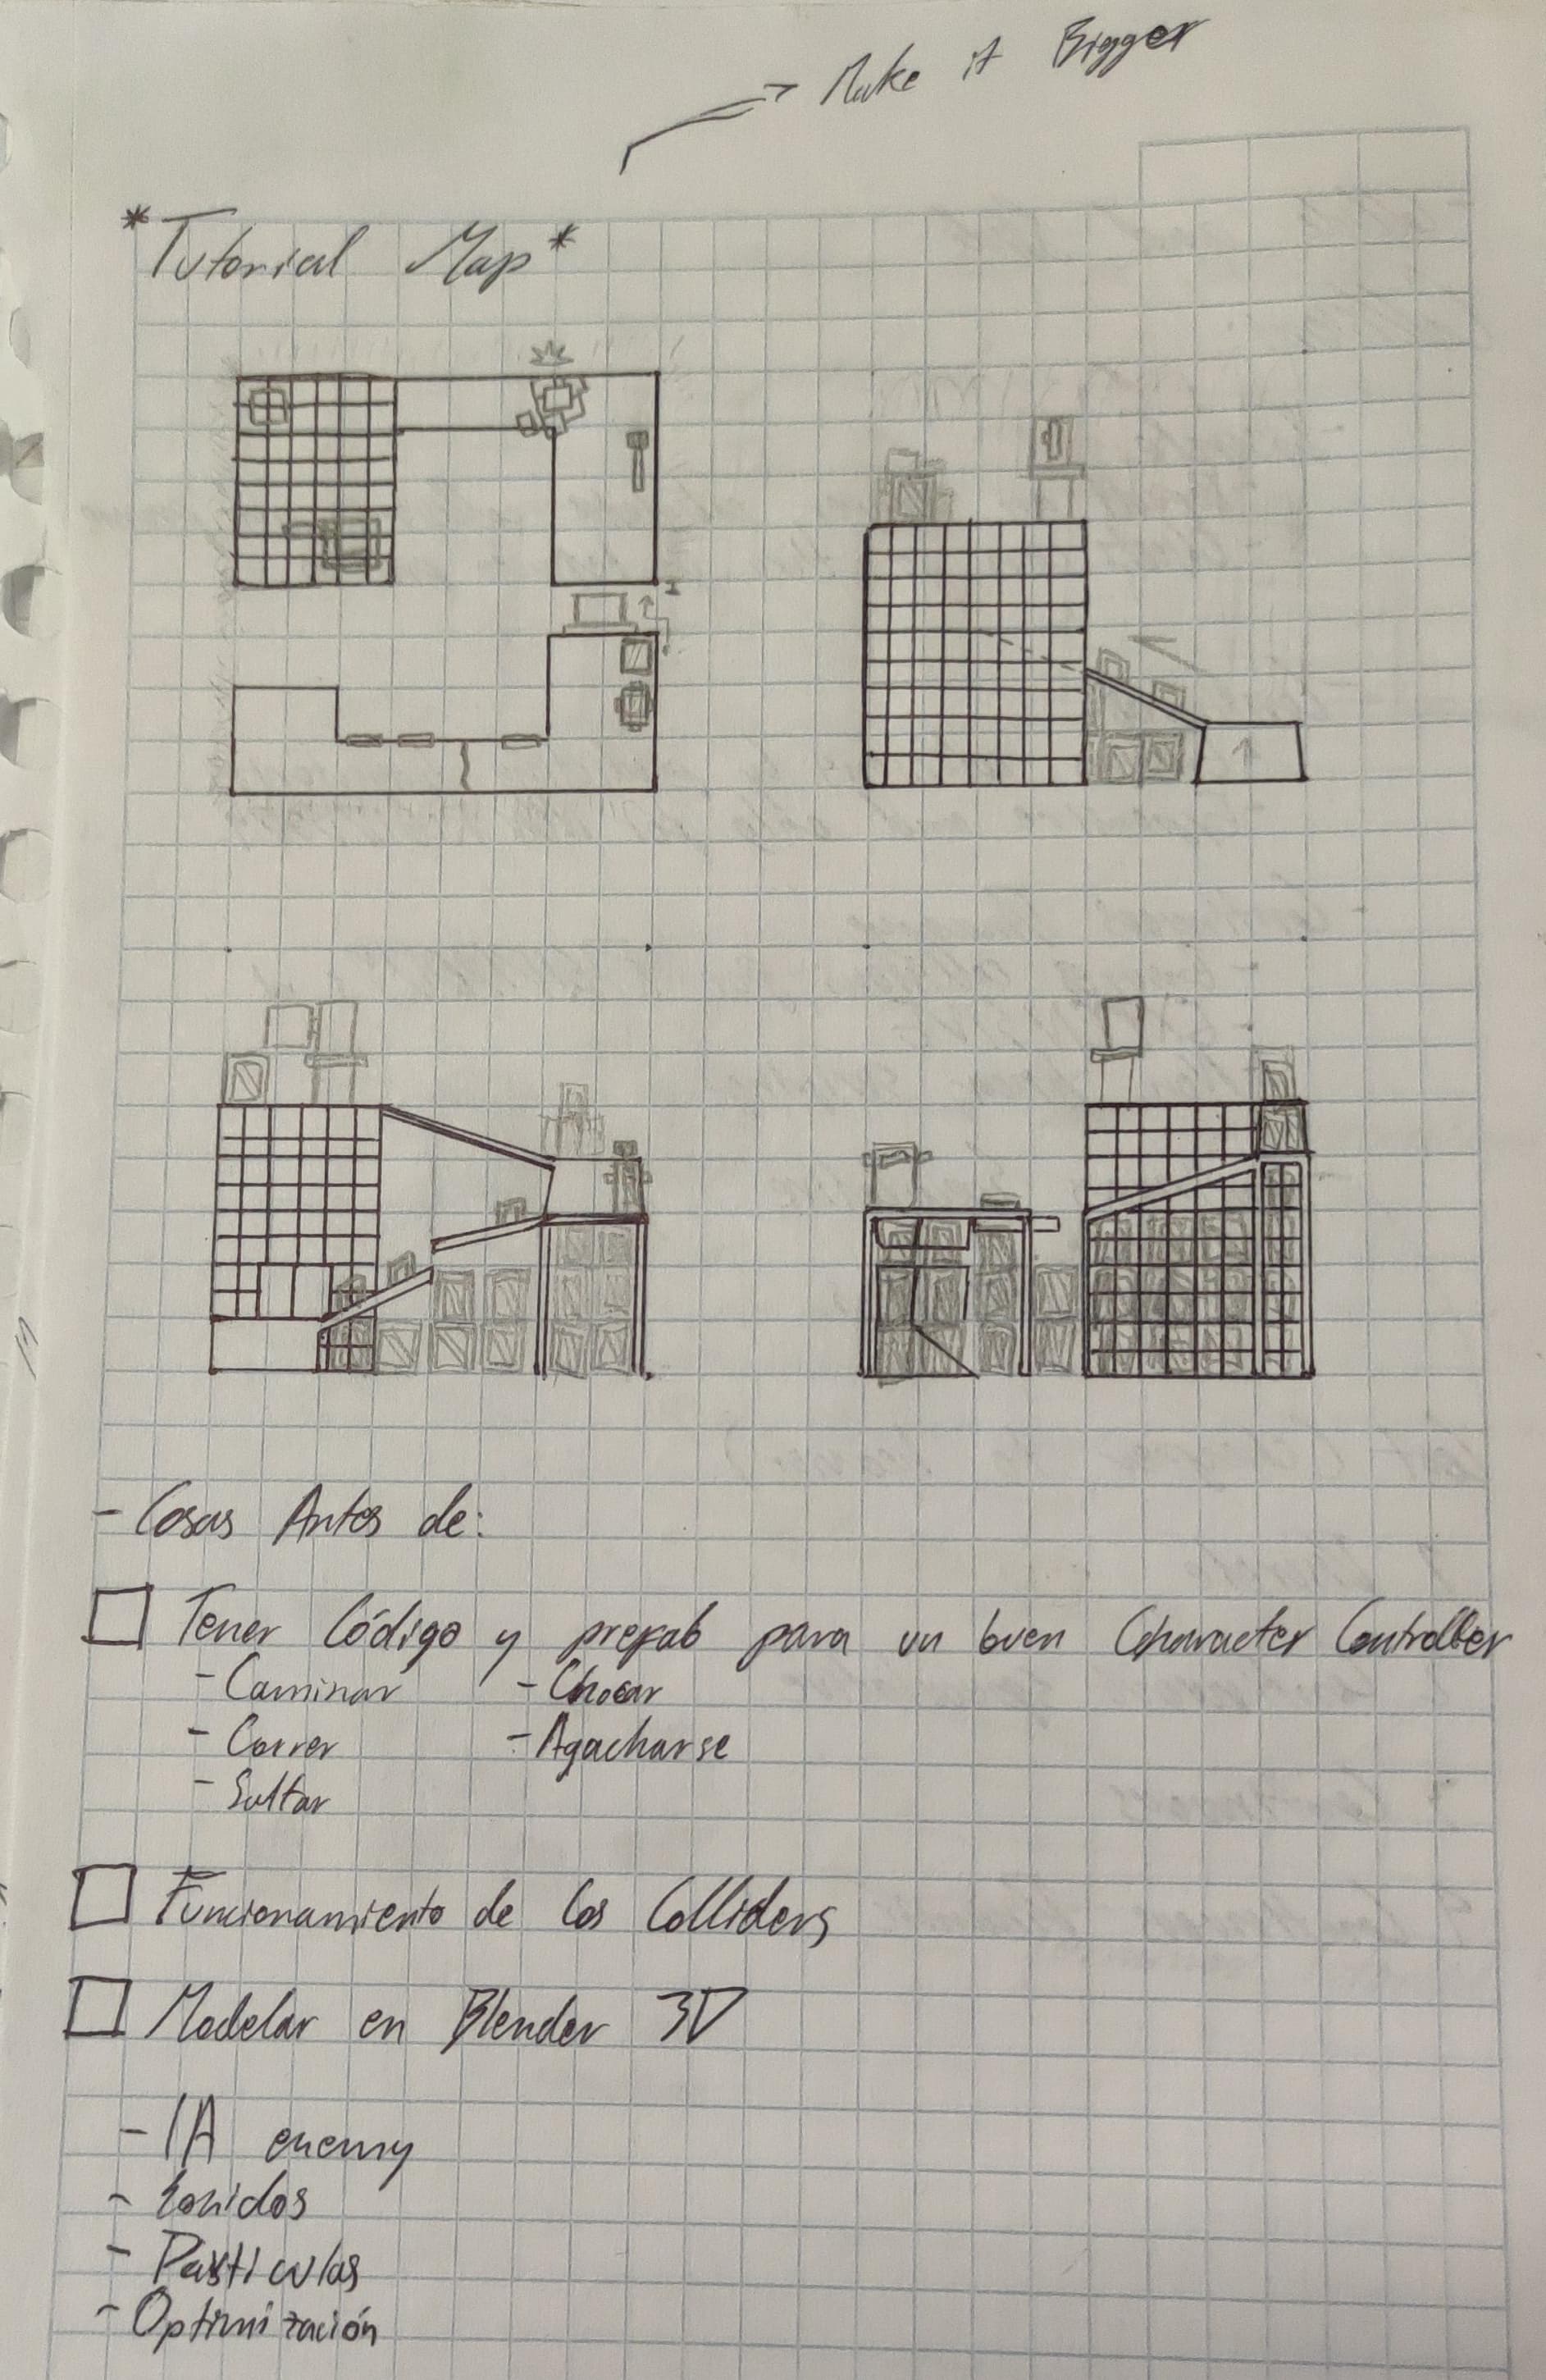 Make it Bigger
*Tutorial Map*
- Cosas Antes de:
Tener Código y prefab para un buen Character Controller
- Caminar - Chocar
- Correr - Agacharse
- Saltar
Funcionamiento de los Colliders
Modelar en Blender 3D
- IA enemy
- Sonidos
- Partículas
- Optimización